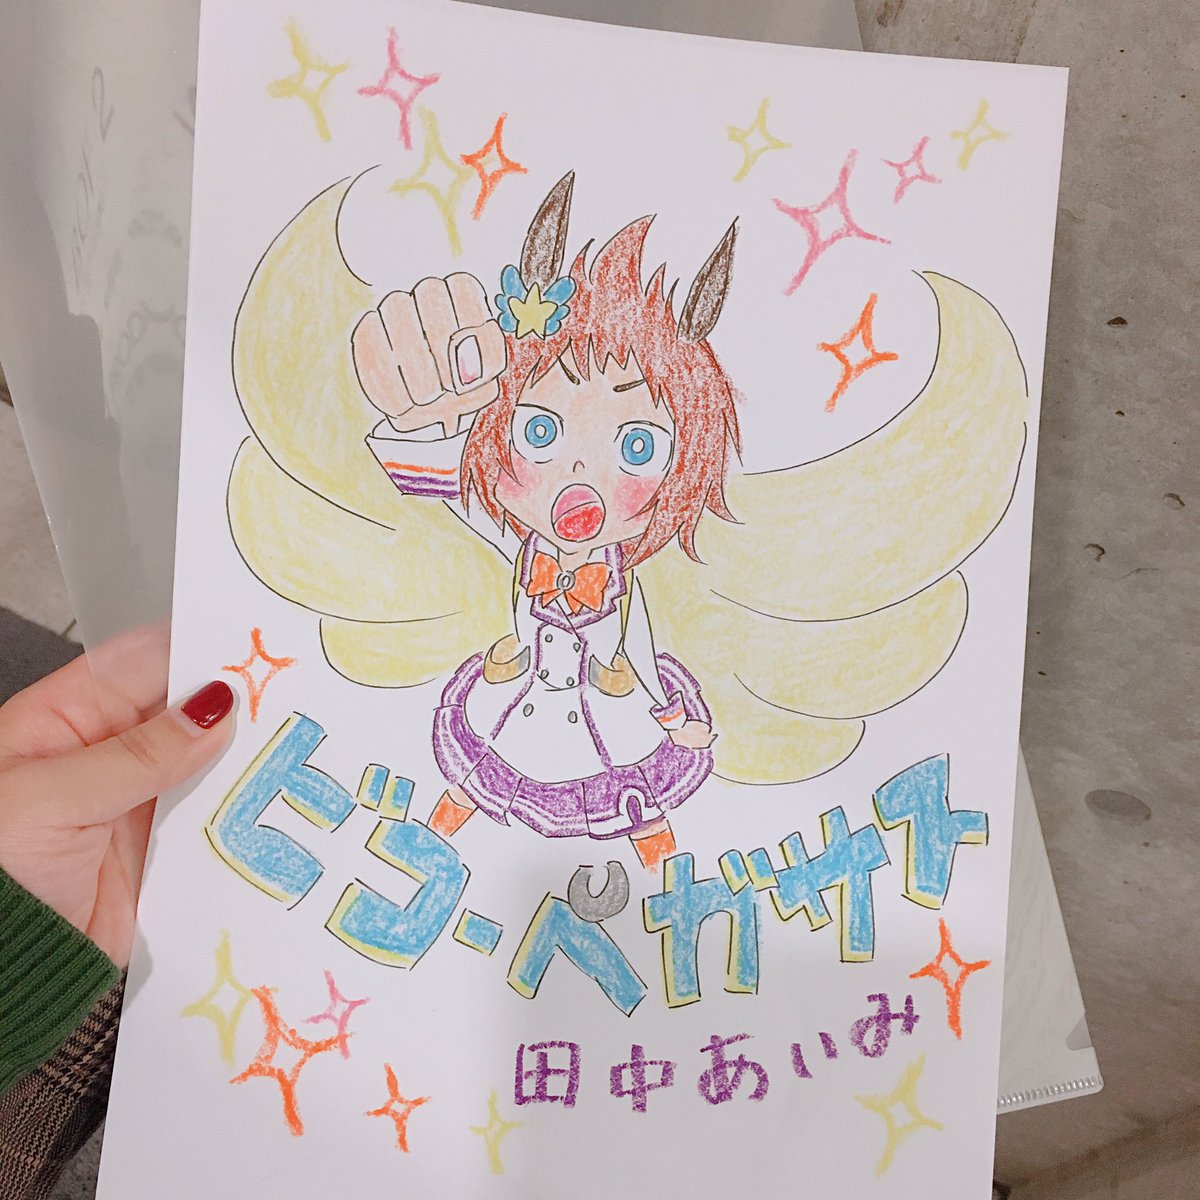 ビコーペガサス
田中あいみ